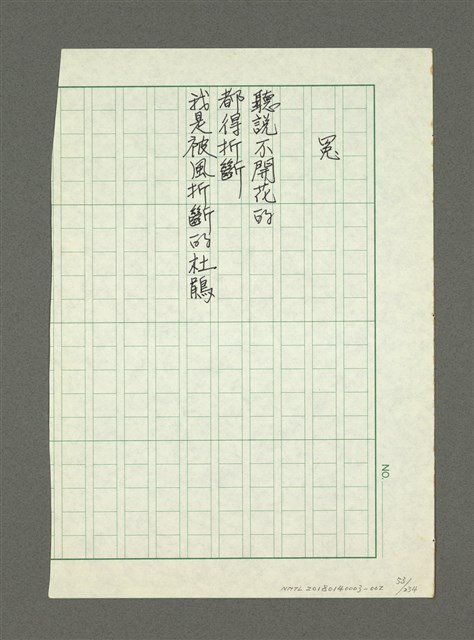 冤
聽說不開花的
都得折斷
我是被風折斷的杜鵑
NO.
NMTL 20180140003-002
53/234